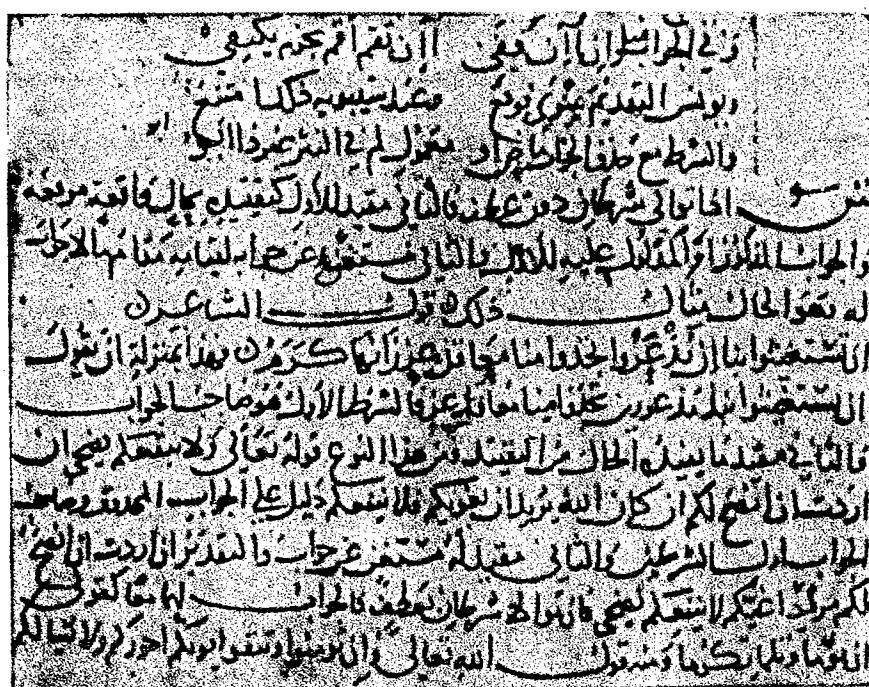 وفي الجواب قبل إن أن يفي أإن تقم أقم بجزم يكتفي
ويونس التقديم ينوي نودع وعند سيبويه ذلك امتنع
والشرط مع
ش إذا توالى شرطان دون عطف فالثاني مقيد للأول كتقييده بحال واقعة موقعه
والجواب المذكور أو المدلول عليه للأول والثاني مستغن عن جواب لقيامه مقام ما لا جواب
له وهو الحال مثال ذلك قول الشاعر
إن تستغيثوا بنا إن تذعروا تجدوا منا معاقل عز زانها كرم فهذا بمنزلة أن يقول
إن تستغيثوا بنا مذعورين تجدوا منا معاقل عز فالشرط الأول هو صاحب الجواب
فالثاني مفيد ما يفيده الحال من التقييد ومن هذا النوع قوله تعالى ولا ينفعكم نصحي إن
أردت أن أنصح لكم إن كان الله يريد أن يغويكم فلا ينفعكم دليل على الجواب المحذوف وصاحب
الجواب أول الشرطين والثاني مقيد له مستغن عن جواب والتقدير إن أردت أن أنصح
لكم مرادا غيكم لا ينفعكم نصحي فإن توالى شرطان بعطف فالجواب لهما معا كقولك
إن تؤمّا وتلما تكرما ومنه قول الله تعالى وإن تؤمنوا وتتقوا يؤتكم أجوركم ولا يسألكم